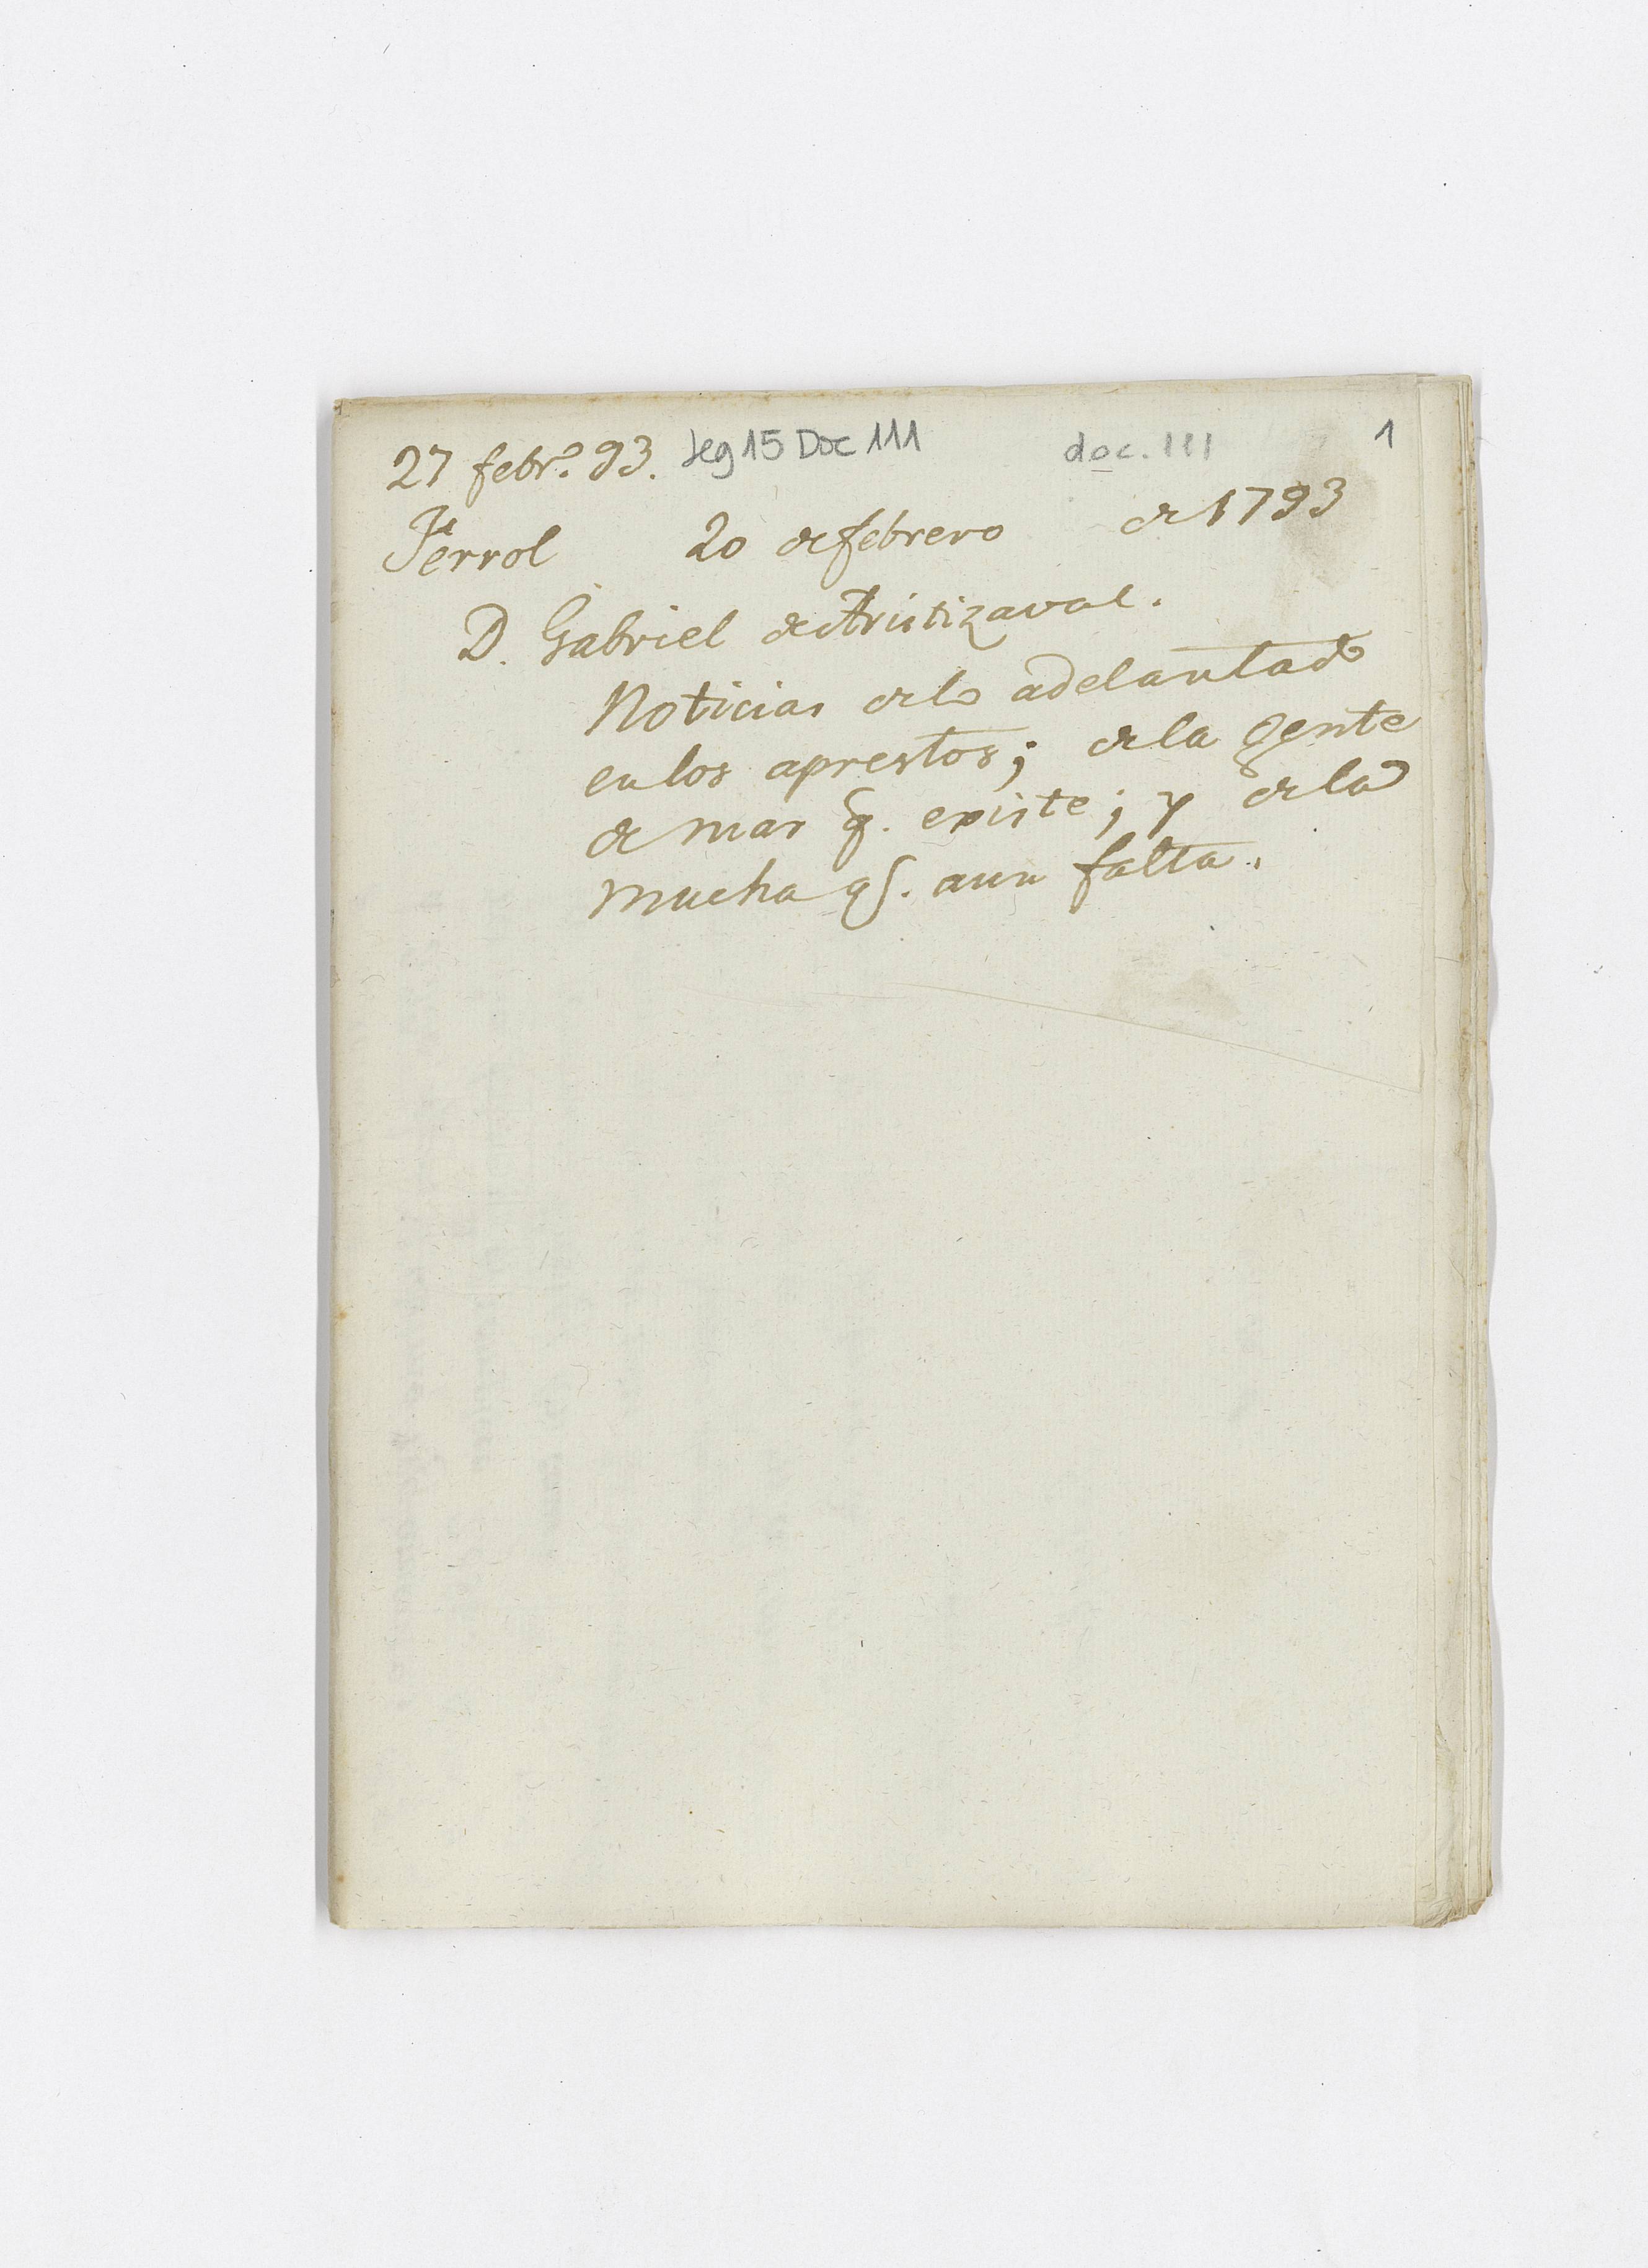 27 febr.º 93. Leg 15 Doc 111 doc. 111 1
Ferrol 20 de febrero de 1793
D. Gabriel de Aristizaval.
Noticias de lo adelantado
en los aprestos; de la gente
de mar q. existe; y de la
mucha q. aun falta.